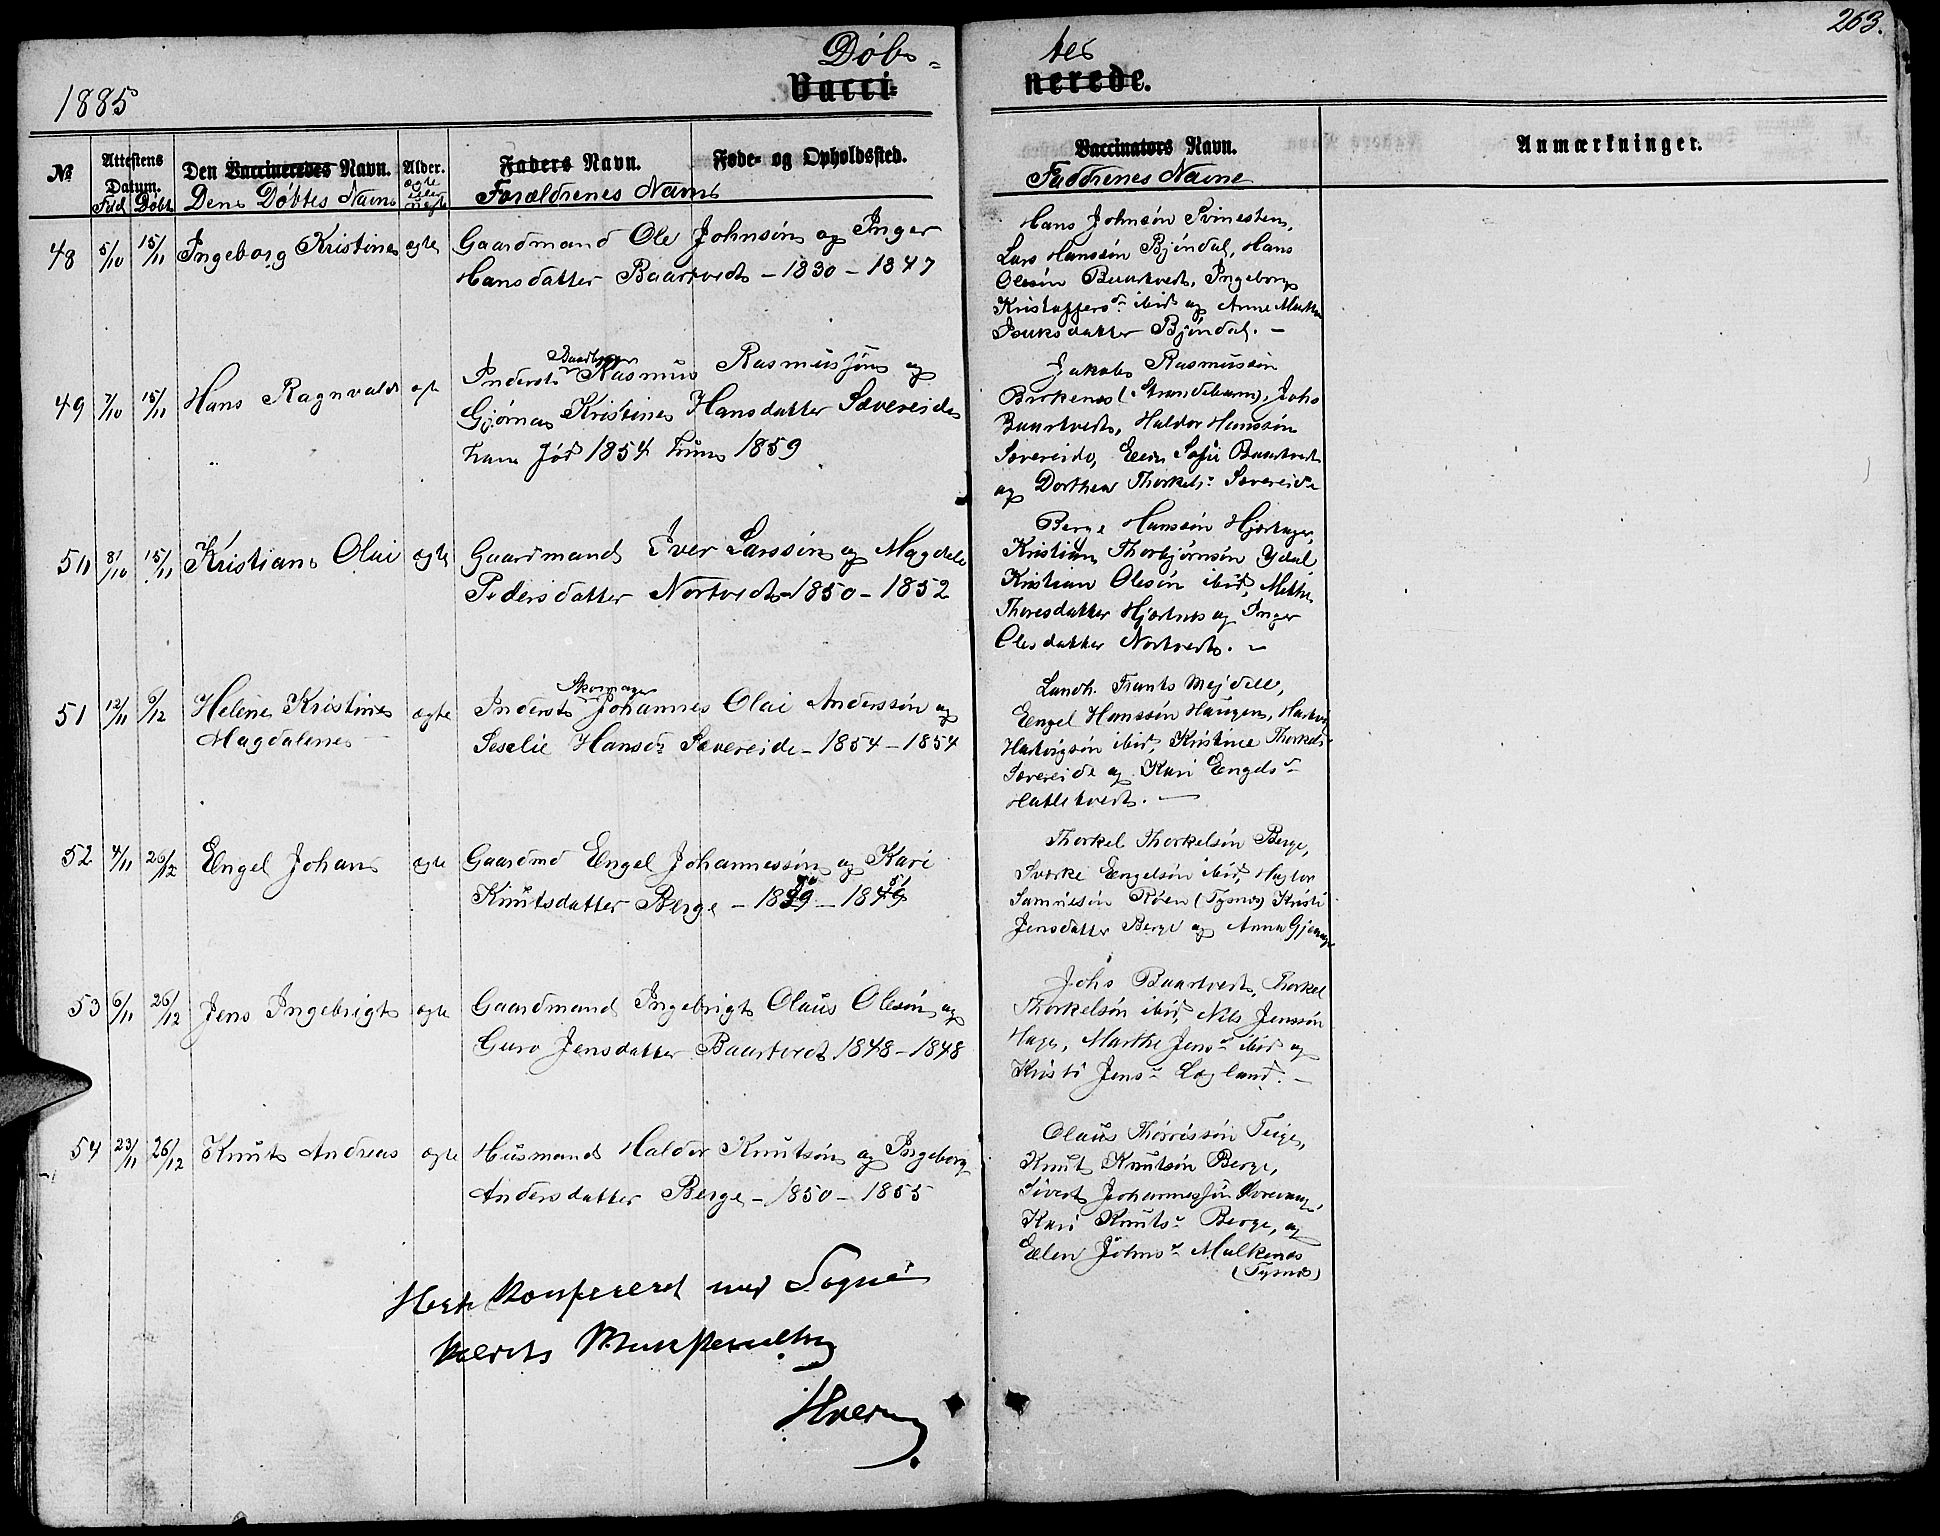 263.
Døbs- tes
1885 Vacci- nerede.
№ Attestens Datum. Den Vaccineredes Navn. Alder. Faders Navn. Føde- og Opholdssted. Vaccinators Navn. Anmærkninger.
Fød Døbt Den Døbtes Navn ægte uægte Forældrenes Navne Faddrenes Navne
48 5/10 15/11 Ingeborg Kristine ægte Gaardmand Ole Johnsøn og Inger
Hansdatter Baartvedt - 1830 - 1847
Hans Johnsøn Svinesten,
Lars Hanssøn Bjøndal, Hans
Olesøn Baartvedt, Ingeborg
Kristoffersd ibid og Anne Martha
Isaksdatter Bjøndal. -
49 7/10 15/11 Hans Ragnvald ægte Inderst Rasmus Rasmussøn og
Kristine Hansdatter Sævereide
han fød 1854 hun 1859
Jakob Rasmussøn
Birkenes (Strandebarm), Johs
Baartvedt, Haldor Hanssøn
Sævereide, Elen Sofie Baartvedt
og Dorthea Thorkels. Sævereide
50 8/10 15/11 Kristian Olai ægte Gaardmand Iver Larssøn og Magdele
Pedersdatter Nortvedt - 1850 - 1852
Berge Hanssøn Hjortager,
Kristian Thorbjørnsøn Ydal
Kristian Olesøn ibid, Methe
Thoresdatter Hjertnes og Inger
Olesdatter Nortvedt. -
51 12/11 6/12 Helene Kristine
Magdalene ægte Skomager
Inderst Johannes Olai Anderssøn og
Seselie Hansd. Sævereide - 1854 - 1854
Landh. Frants Mejdell,
Engel Hanssøn Haugen, Hartvig
Hartvigsøn ibid, Kristine Thorkels.
Sævereide og Kari Engelsd.
Hatlekvedt. -
52 4/11 26/12 Engel Johan ægte Gaardmd Engel Johannessøn og Kari
Knutsdatter Berge - 1839 - 1849
Thorkel Thorkelsøn Berge,
Sverke Engelsøn ibid,
Samuelsøn Røen (Tysnes) Kristi
Jensdatter Berge og Anna
53 6/11 26/12 Jens Ingebrigt ægte Gaardmand Ingebrigt Olaus Olesøn og
Guro Jensdatter Baartvedt 1848 - 1848
Johs Baartvedt, Thorkel
Thorkelsøn ibid, Nils Jenssøn
Hage, Marthe Jensd ibid og
Kristi Jensd. Løgland. -
54 23/11 26/12 Knut Andreas ægte Husmand Haldor Knutsøn og Ingeborg
Andersdatter Berge - 1850 - 1855
Olaus Thorissøn Teige,
Knut Knutsøn Berge,
Sivert Johannessøn
Kari Knutsd. Berge, og
Elen Johnsd. Malkenes
(Tysnes)
Herk Konfereret med Sogne
Hvering